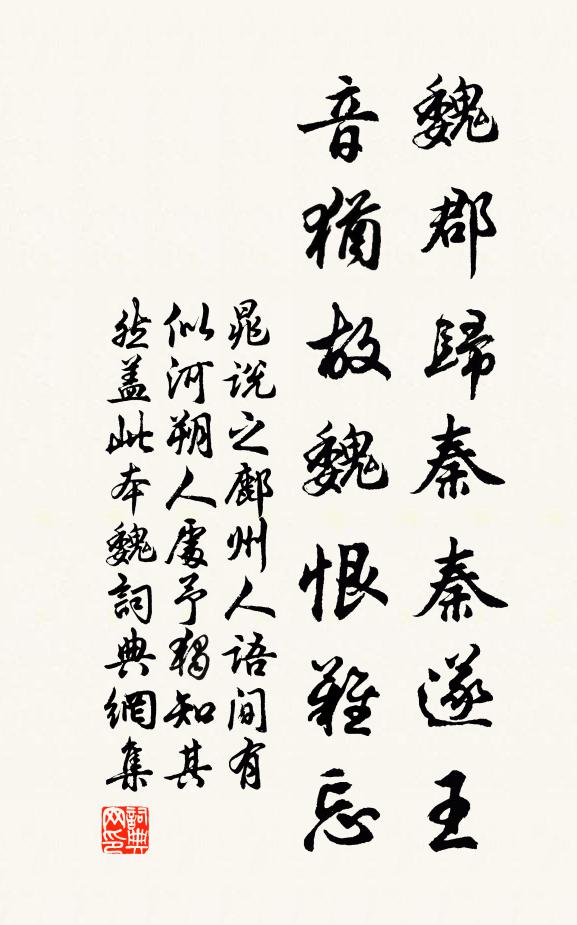 魏郡歸秦秦遂王
音猶故魏恨難忘
晁說之鄜州人語間有
似河朔人處予獨知其
然蓋此本魏詞典網集
詞典网印